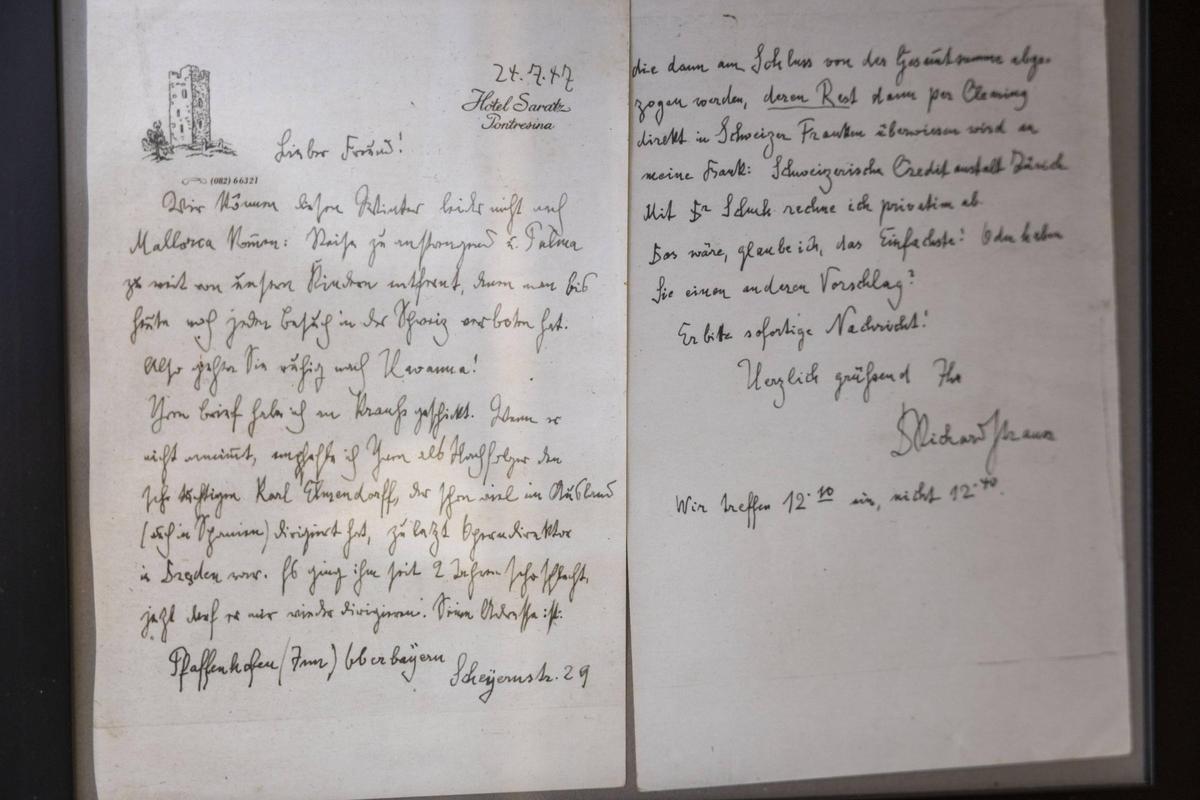 24.7.47
Hotel Saratz
Pontresina
Lieber Freund!
(082) 66321
Wir können diesen Winter leider nicht nach
Mallorca kommen: Reise zu anstrengend u. Palma
zu weit von unsern Kindern entfernt, denen man bis
heute noch jeden Besuch in der Schweiz verboten hat.
Also gehen Sie ruhig nach Havanna!
Ihren Brief habe ich an Krauß geschickt. Wenn er
nicht annimmt, empfehle ich Ihnen als Nachfolger den
sehr tüchtigen Karl Elmendorff, der schon viel im Ausland
(auch in Spanien) dirigiert hat, zuletzt Operndirektor
in Dresden war. Es ging ihm seit 2 Jahren sehr schlecht,
jetzt darf er nur wieder dirigieren. Seine Adresse ist:
Pfaffenhofen (Inn) Oberbayern
Scheyernstr. 29
die dann am Schluss von der Gesamtsumme abge-
zogen werden, deren Rest dann per Clearing
direkt in Schweizer Franken überwiesen wird an
meine Bank: Schweizerische Creditanstalt Zürich
Mit Dr Schuh rechne ich privatim ab.
Das wäre, glaube ich, das Einfachste! Oder haben
Sie einen anderen Vorschlag?
Erbitte sofortige Nachricht!
Herzlich grüßend Ihr
DRichard Strauss
Wir treffen 12.10 ein, nicht 12.40.